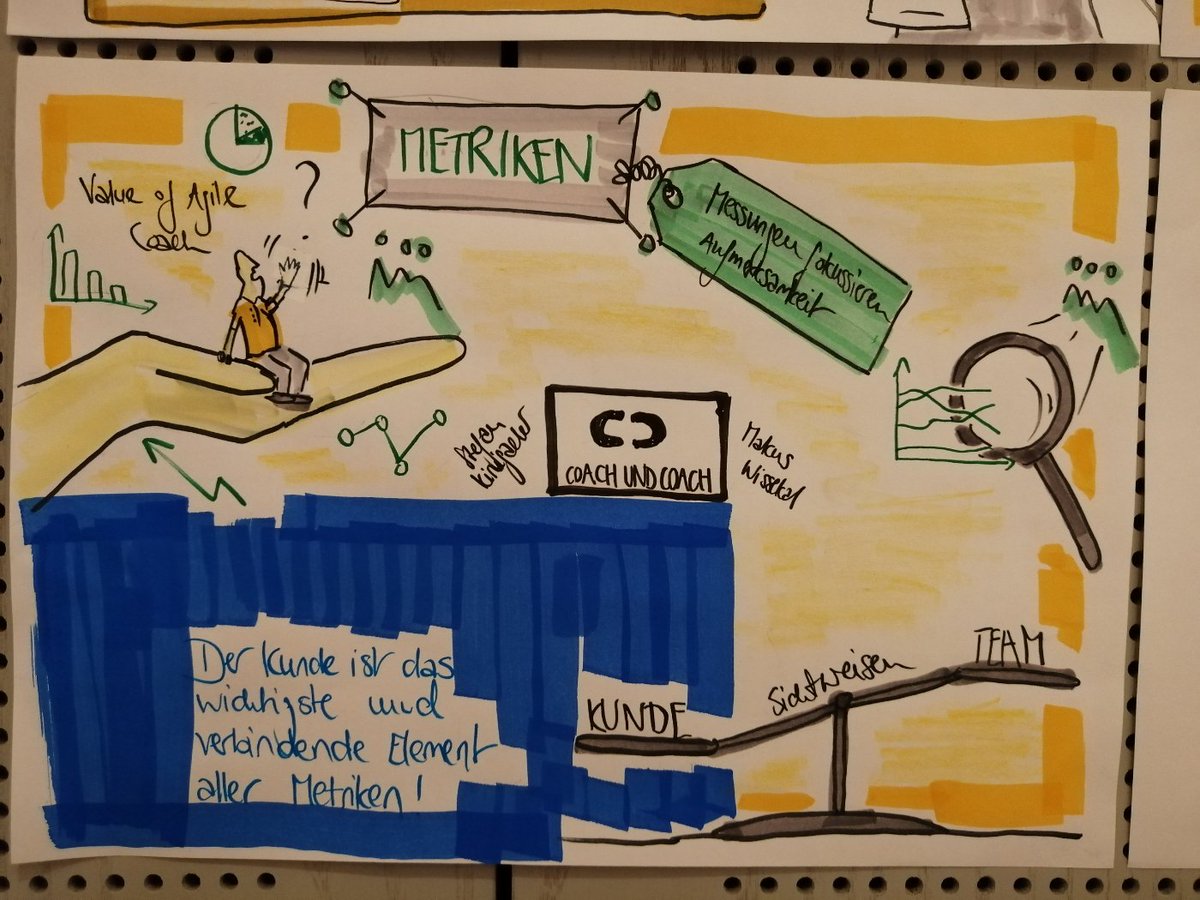 METRIKEN
Messungen fokussieren
Aufmerksamkeit
Value of Agile
Coach
?
COACH UND COACH
Markus
Der Kunde ist das
wichtigste und
verbindende Element
aller Metriken!
KUNDE
Sichtweisen
TEAM